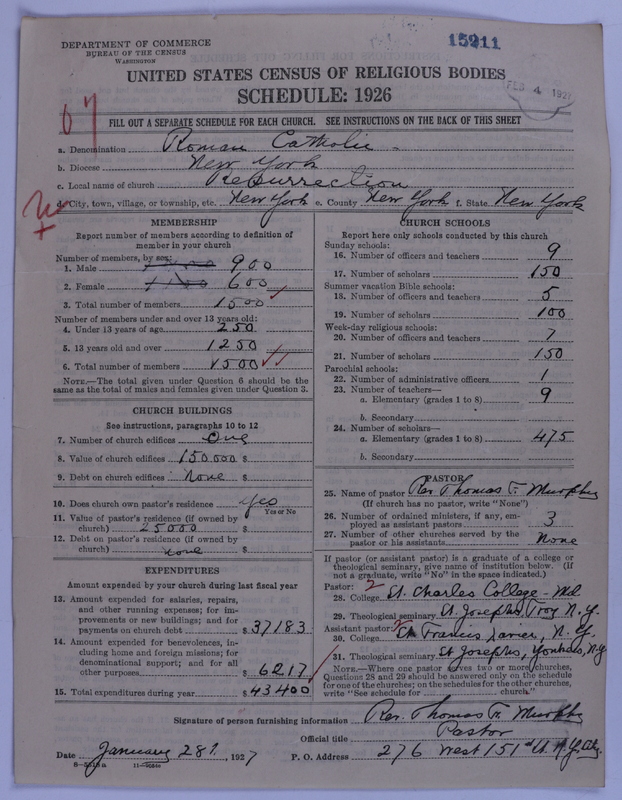 15911
DEPARTMENT OF COMMERCE
BUREAU OF THE CENSUS
WASHINGTON
FEB 4 192
UNITED STATES CENSUS OF RELIGIOUS BODIES
SCHEDULE: 1926
FILL OUT A SEPARATE SCHEDULE FOR EACH CHURCH. SEE INSTRUCTIONS ON THE BACK OF THIS SHEET
a. Denomination Roman Catholic
b. Diocese New York
c. Local name of church Resurrection
d. City, town, village, or township, etc. New York e. County New York f. State New York
MEMBERSHIP
Report number of members according to definition of
member in your church
Number of members, by sex:
1. Male 900
2. Female 600
3. Total number of members 1500
Number of members under and over 13 years old:
4. Under 13 years of age 250
5. 13 years old and over 1250
6. Total number of members 1500
NOTE.—The total given under Question 6 should be the
same as the total of males and females given under Question 3.
CHURCH BUILDINGS
See instructions, paragraphs 10 to 12
7. Number of church edifices One
8. Value of church edifices 150000 $
9. Debt on church edifices none $
10. Does church own pastor's residence yes
Yes or No
11. Value of pastor's residence (if owned by
church) 25000 $
12. Debt on pastor's residence (if owned by
church) none $
EXPENDITURES
Amount expended by your church during last fiscal year
13. Amount expended for salaries, repairs,
and other running expense; for im-
provements or new buildings; and for
payments on church debt $ 37183
14. Amount expended for benevolences, in-
cluding home and foreign missions; for
denominational support; and for all
other purposes $ 6217
15. Total expenditures during year $ 43400
CHURCH SCHOOLS
Report here only schools conducted by this church
Sunday schools:
16. Number of officers and teachers 9
17. Number of scholars 150
Summer vacation Bible schools:
18. Number of officers and teachers 5
19. Number of scholars 100
Week-day religious schools:
20. Number of officers and teachers 7
21. Number of scholars 150
Parochial schools:
22. Number of administrative officers 1
23. Number of teachers—
a. Elementary (grades 1 to 8) 9
b. Secondary
24. Number of scholars—
a. Elementary (grades 1 to 8) 475
b. Secondary
PASTOR
25. Name of pastor Rev Thomas F. Murphy
(If church has no pastor, write "None")
26. Number of ordained ministers, if any, em-
ployed as assistant pastors 3
27. Number of other churches served by the
pastor or his assistants None
If pastor (or assistant pastor) is a graduate of a college or
theological seminary, give name of institution below. (If
not a graduate, write "No" in the space indicated.)
Pastor: 2
28. College St Charles College - Md
29. Theological seminary St. Josephs Troy N.Y.
Assistant pastor:
30. College St Francis Xavier, N.Y.
31. Theological seminary St Josephs, Yonkers, N.Y
NOTE.—Where one pastor serves two or more churches,
Questions 28 and 29 should be answered only on the schedule
for one of the churches; on the schedules for the other churches,
write "See schedule for church."
Signature of person furnishing information Rev. Thomas F. Murphy
Official title Pastor
Date January 28, 1927 P. O. Address 276 West 151st St. N.Y. City.